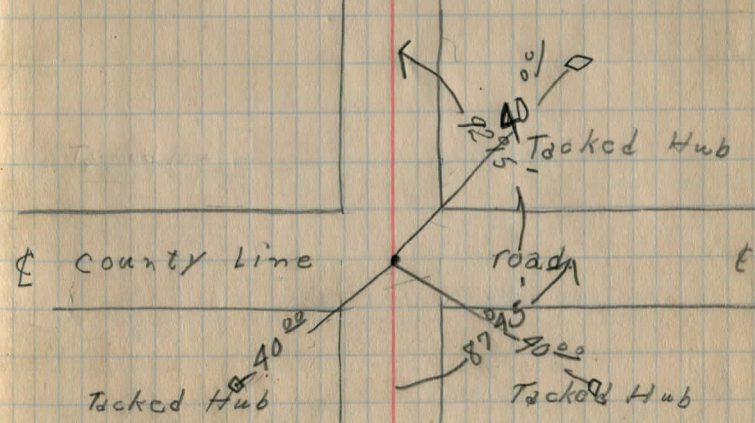 40
Tacked Hub
℄ County Line
road
40 00
87
40 00
Tacked Hub
Tacked Hub